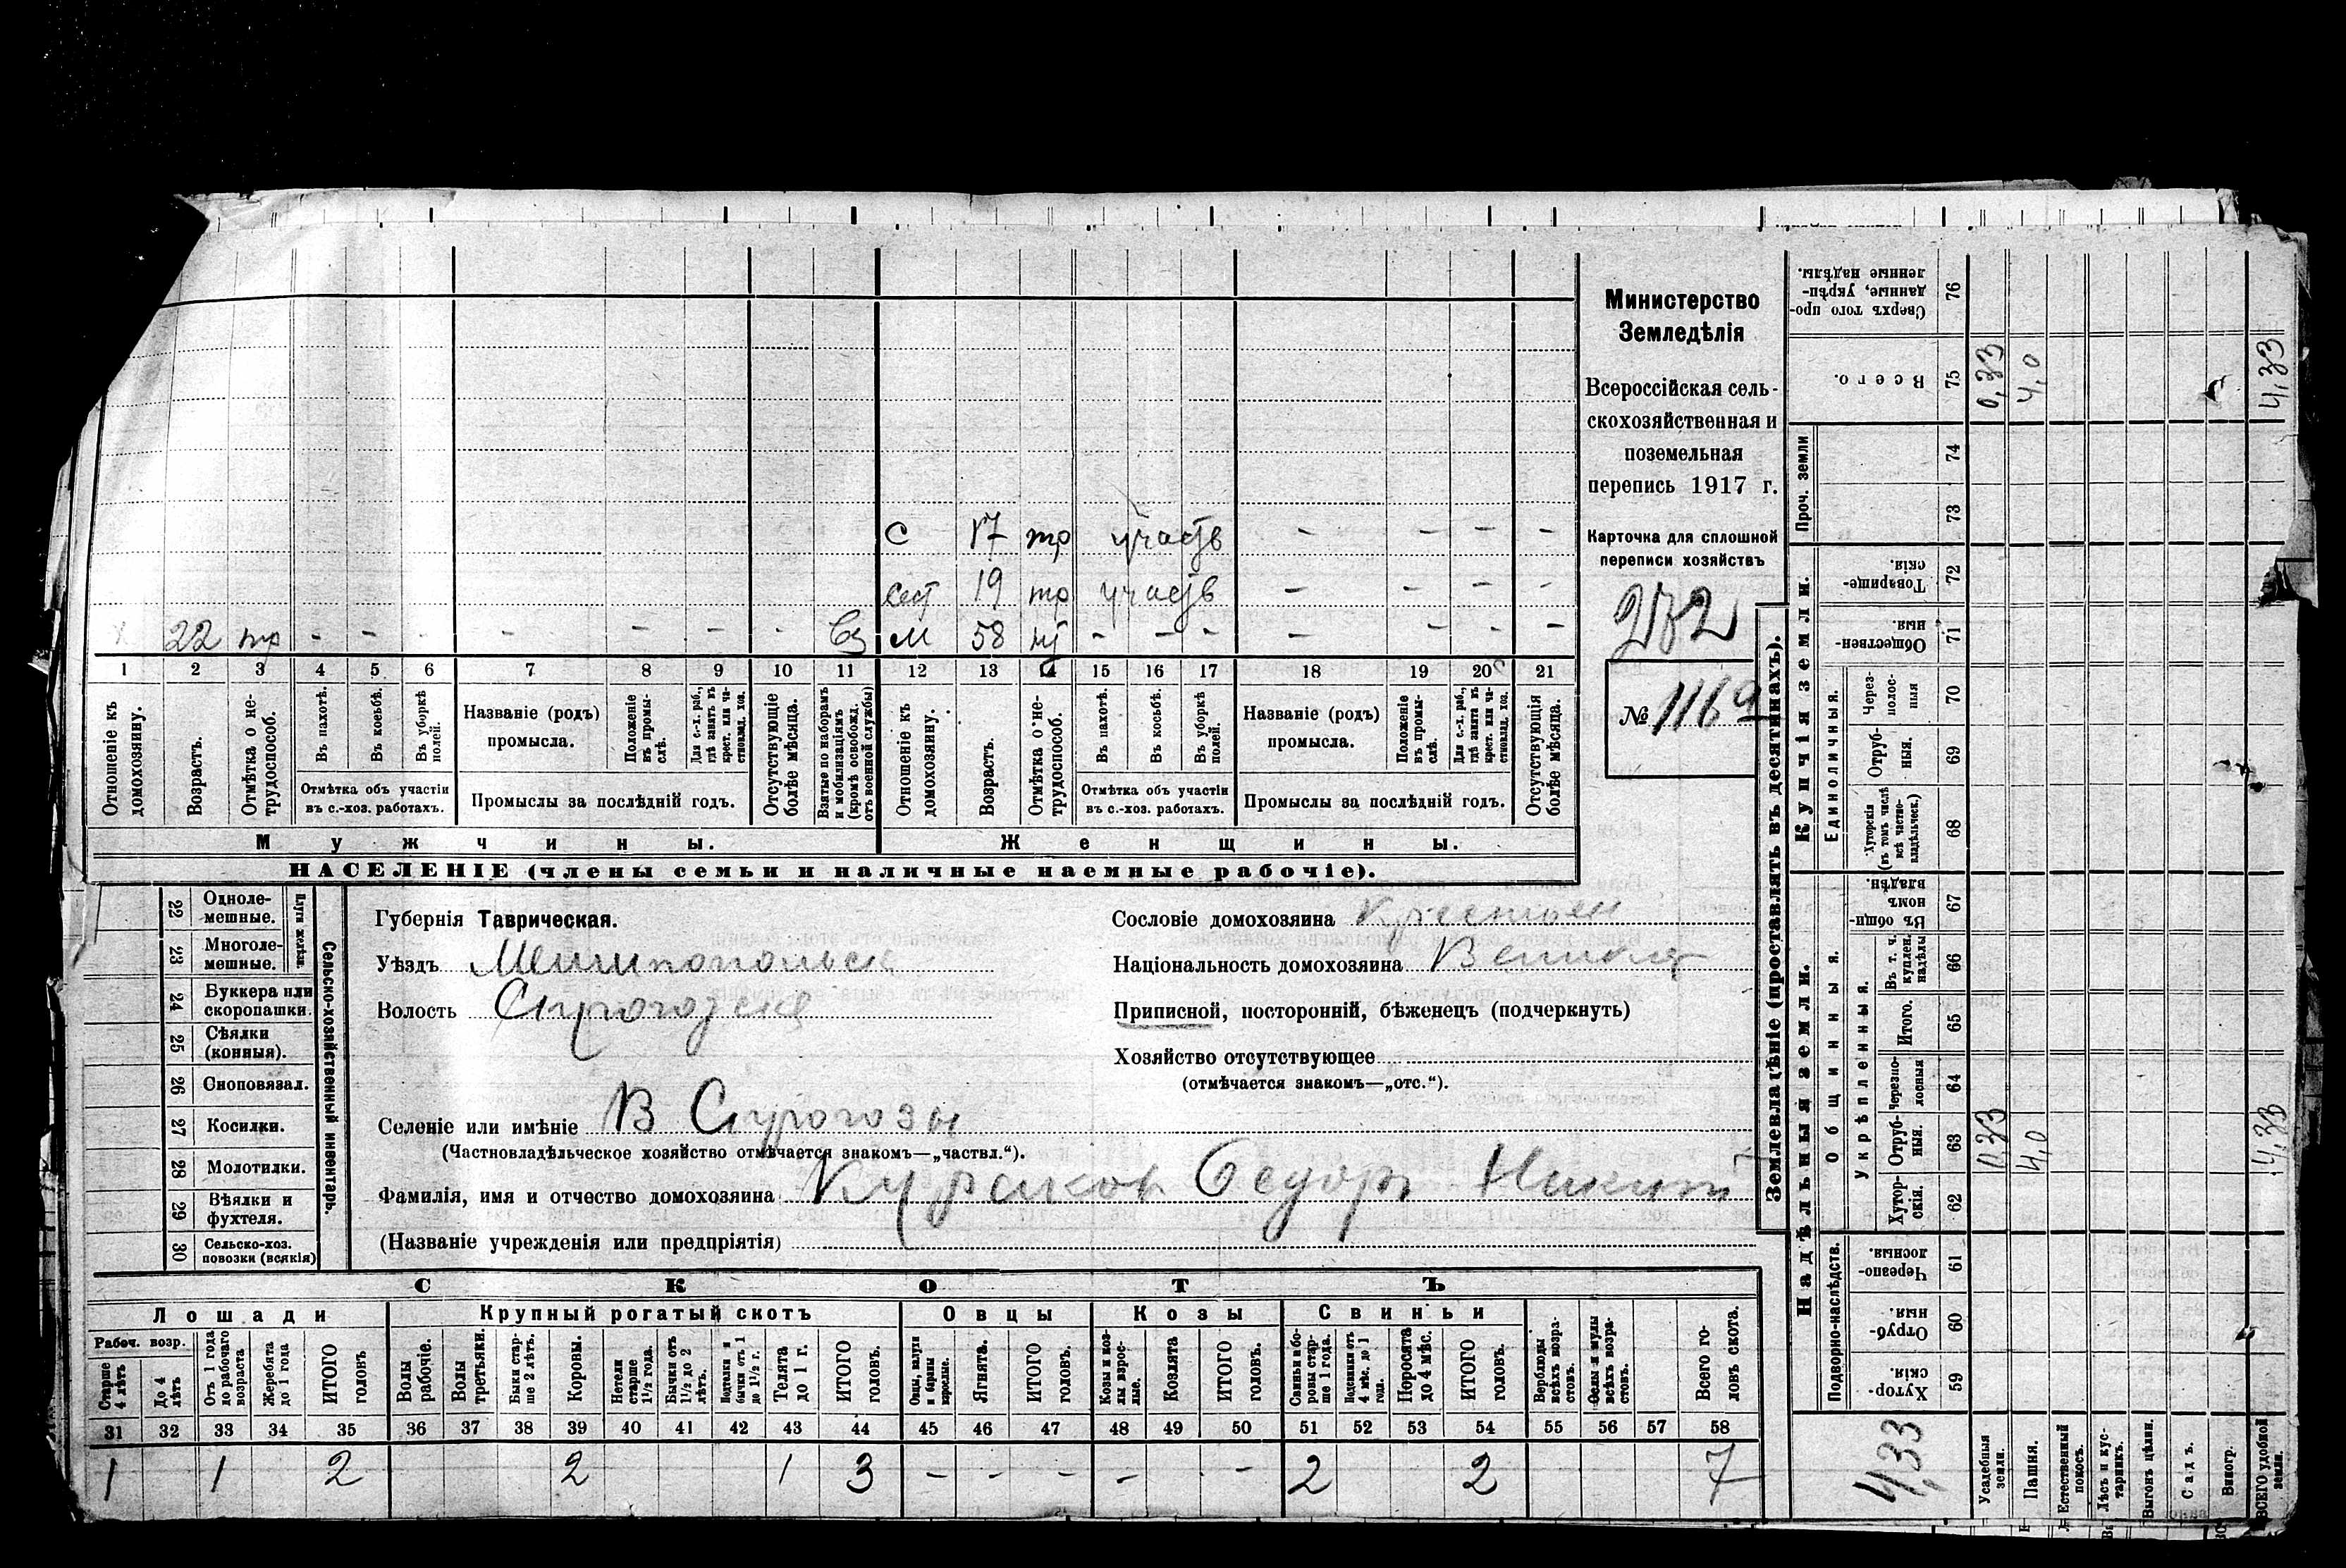 Министерство
Земледѣлія
Всероссійская сель-
скохозяйственная и
поземельная
перепись 1917 г.
Карточка для сплошной
переписи хозяйствъ
282
№ 1169
С 17 тр участв - - - -
сест 19 тр участв - - - -
22 тр - - - - - - - Вз М 58 нт - - - - - - -
1 2 3 4 5 6 7 8 9 10 11 12 13 14 15 16 17 18 19 20 21
Отношеніе къ домохозяину.
Возрастъ.
Отмѣтка о не-трудоспособ.
Въ пахотѣ.
Въ косьбѣ.
Въ уборкѣ полей.
Отмѣтка объ участіи
въ с.-хоз. работахъ.
Названіе (родъ)
промысла.
Положеніе въ промы-слѣ.
Для с.-х. раб., гдѣ занятъ въ крест. или ча-стновлад. хоз.
Промыслы за послѣдній годъ.
Отсутствующіе болѣе мѣсяца.
Взятые по наборамъ и мобилизаціямъ (кромѣ освобожд. отъ военной службы)
Отношеніе къ домохозяину.
Возрастъ.
Отмѣтка о не-трудоспособ.
Въ пахотѣ.
Въ косьбѣ.
Въ уборкѣ полей.
Отмѣтка объ участіи
въ с.-хоз. работахъ.
Названіе (родъ)
промысла.
Положеніе въ промы-слѣ.
Для с.-х. раб., гдѣ занята въ крест. или ча-стновлад. хоз.
Промыслы за послѣдній годъ.
Отсутствующія болѣе мѣсяца.
Мужчины. Женщины.
НАСЕЛЕНІЕ (члены семьи и наличные наемные рабочіе).
22 Одноле-мешные.
23 Многоле-мешные.
Плуги желѣзн.
24 Буккера или скоропашки.
25 Сѣялки (конныя).
26 Сноповязал.
27 Косилки.
28 Молотилки.
29 Вѣялки и фухтеля.
30 Сельско-хоз. повозки (всякія)
Сельско-хозяйственный инвентарь.
Губернія Таврическая.
Уѣздъ Мелитопольск
Волость
Селеніе или имѣніе В Сурогозы
(Частновладѣльческое хозяйство отмѣчается знакомъ—„частвл.“).
Фамилія, имя и отчество домохозяина Федоръ Никит
(Названіе учрежденія или предпріятія)
Сословіе домохозяина Крестьян
Національность домохозяина Великор
Приписной, посторонній, бѣженецъ (подчеркнуть)
Хозяйство отсутствующее
(отмѣчается знакомъ—„отс.“).
СКОТЪ
Лошади Крупный рогатый скотъ Овцы Козы Свиньи
Рабоч. возр.
Старше 4 лѣтъ
До 4 лѣтъ
Отъ 1 года до рабочаго возраста
Жеребята до 1 года
ИТОГО головъ
Волы рабочіе.
Волы третьяки.
Быки стар-ше 2 лѣтъ.
Коровы.
Нетели старше 1½ года.
Бычки отъ 1½ до 2 лѣтъ.
Подтелки и бычки отъ 1 до 1½ г.
Телята до 1 г.
ИТОГО головъ.
Овцы, валухи и бараны взрослые.
Ягнята.
ИТОГО головъ.
Козы и коз-лы взрос-лые.
Козлята
ИТОГО головъ.
Свиньи и бо-ровы стар-ше 1 года.
Подсвинки отъ 4 мѣс. до 1 года.
Поросята до 4 мѣс.
ИТОГО головъ.
Верблюды всѣхъ возра-стовъ.
Ослы и мулы всѣхъ возра-стовъ.
Всего го-ловъ скота.
31 32 33 34 35 36 37 38 39 40 41 42 43 44 45 46 47 48 49 50 51 52 53 54 55 56 57 58
1 1 2 2 1 3 - - - - - - 2 2 7
Землевладѣніе (проставлять въ десятинахъ).
Купчія земли.
Надѣльныя земли.
Сверхъ того про-данные, укрѣп-ленные надѣлы. 76
Всего. 75 0,33 4,0 4,33
Проч. земли 74
73
Товарище-скія. 72
Обществен-ныя. 71
Единоличныя.
Через-полос-ныя 70
Отруб-ныя. 69
Хуторскія (въ томъ числѣ всѣ частно-владѣльческ.) 68
Общинныя.
Въ общин-номъ владѣн. 67
Въ т. ч. куплен. надѣлы 66
Укрѣпленныя.
Итого. 65
Черезпо-лосныя 64
Отруб-ныя. 63 0,33 4,0 4,33
Хутор-скія. 62
Подворно-наслѣдств.
Черезпо-лосныя. 61
Отруб-ныя 60
Хутор-скія 59
4,33
Усадебныя земли.
Пашня.
Естественный покосъ.
Лѣсъ и кус-тарникъ.
Выгонъ цѣлин.
Садъ.
Виногр.
ВСЕГО удобной земли.